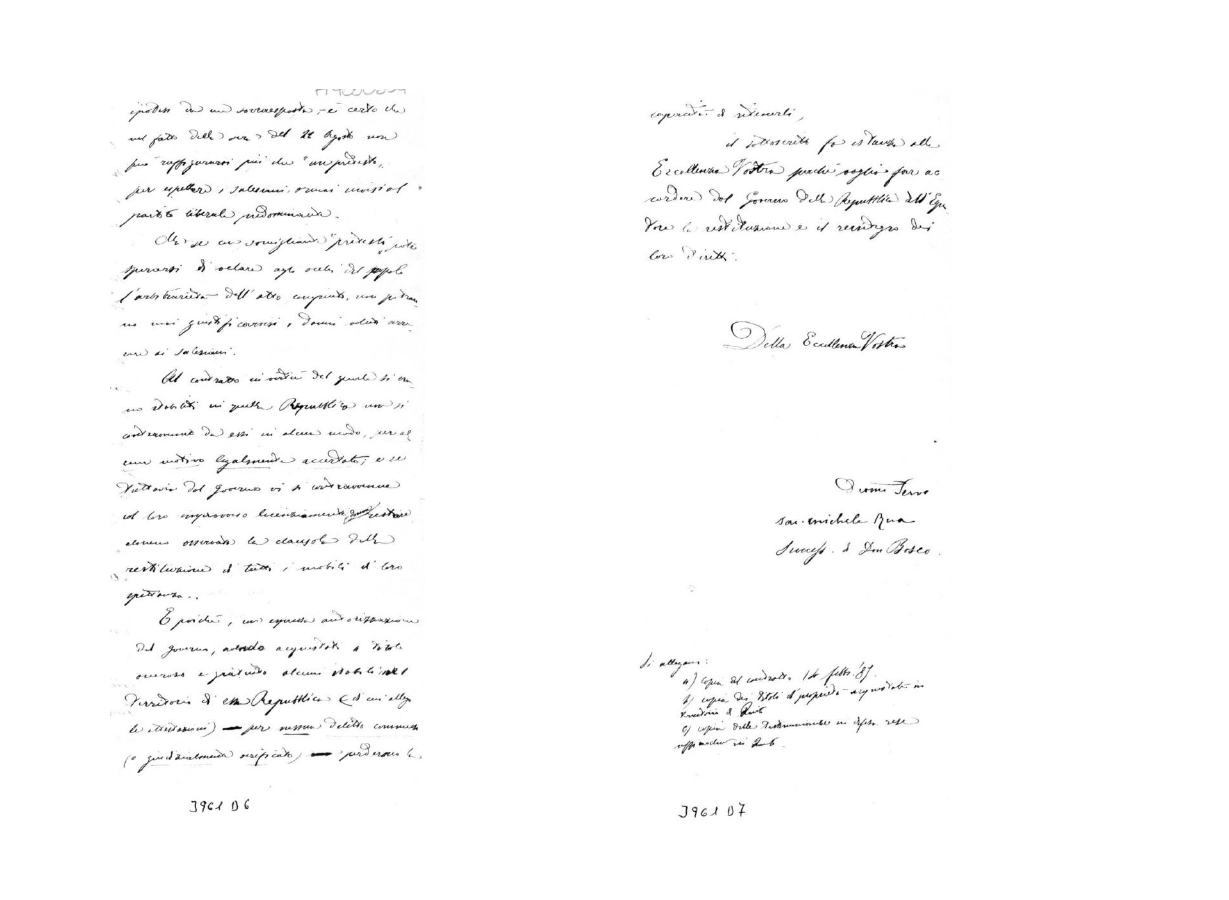 è certo che
nel fatto della del 22 Agosto non
può raffigurarsi più che un pretesto,
per espellere i salesiani omai invisi al
partito liberale predominante.
Ma se un somigliante pretesto potè
sperarsi di velare agli occhi del popolo
l'arbitrarietà dell'atto compiuto, non potran
no mai giustificarsi i danni voluti arre
care ai salesiani.
Al contratto in virtù del quale si era
no stabiliti in quella Repubblica non si
contravvenne da essi in alcun modo, per al
cun motivo legalmente accertato; e se
tuttavia dal governo vi si contravvenne
col loro improvviso licenziamento,
almeno osservata la clausola della
restituzione di tutti i mobili di loro
spettanza..
E poichè, con espressa autorizzazione
del governo, avendo acquistati a titolo
oneroso e gratuito alcuni stabili nel
territorio di essa Repubblica (di cui allega
le attestazioni) — per nessun delitto commesso
(o giudizialmente verificato) — perderono la
J961 D6
capacità di ritenerli,
il sottoscritto fa istanza alla
Eccellenza Vostra perchè voglia far ac
cordare dal Governo della Repubblica dell'Equa
tore la restituzione e il reintegro dei
loro diritti.
Della Eccellenza Vostra
Servo
Sac. Michele Rua
Success. di Don Bosco.
Si allegano:
a) Copia del contratto 14 febb. '87.
b) copia dei titoli di proprietà acquistati in
territorio di Quito
c) copia delle testimonianze in difesa rese
in Quito.
J961 D7